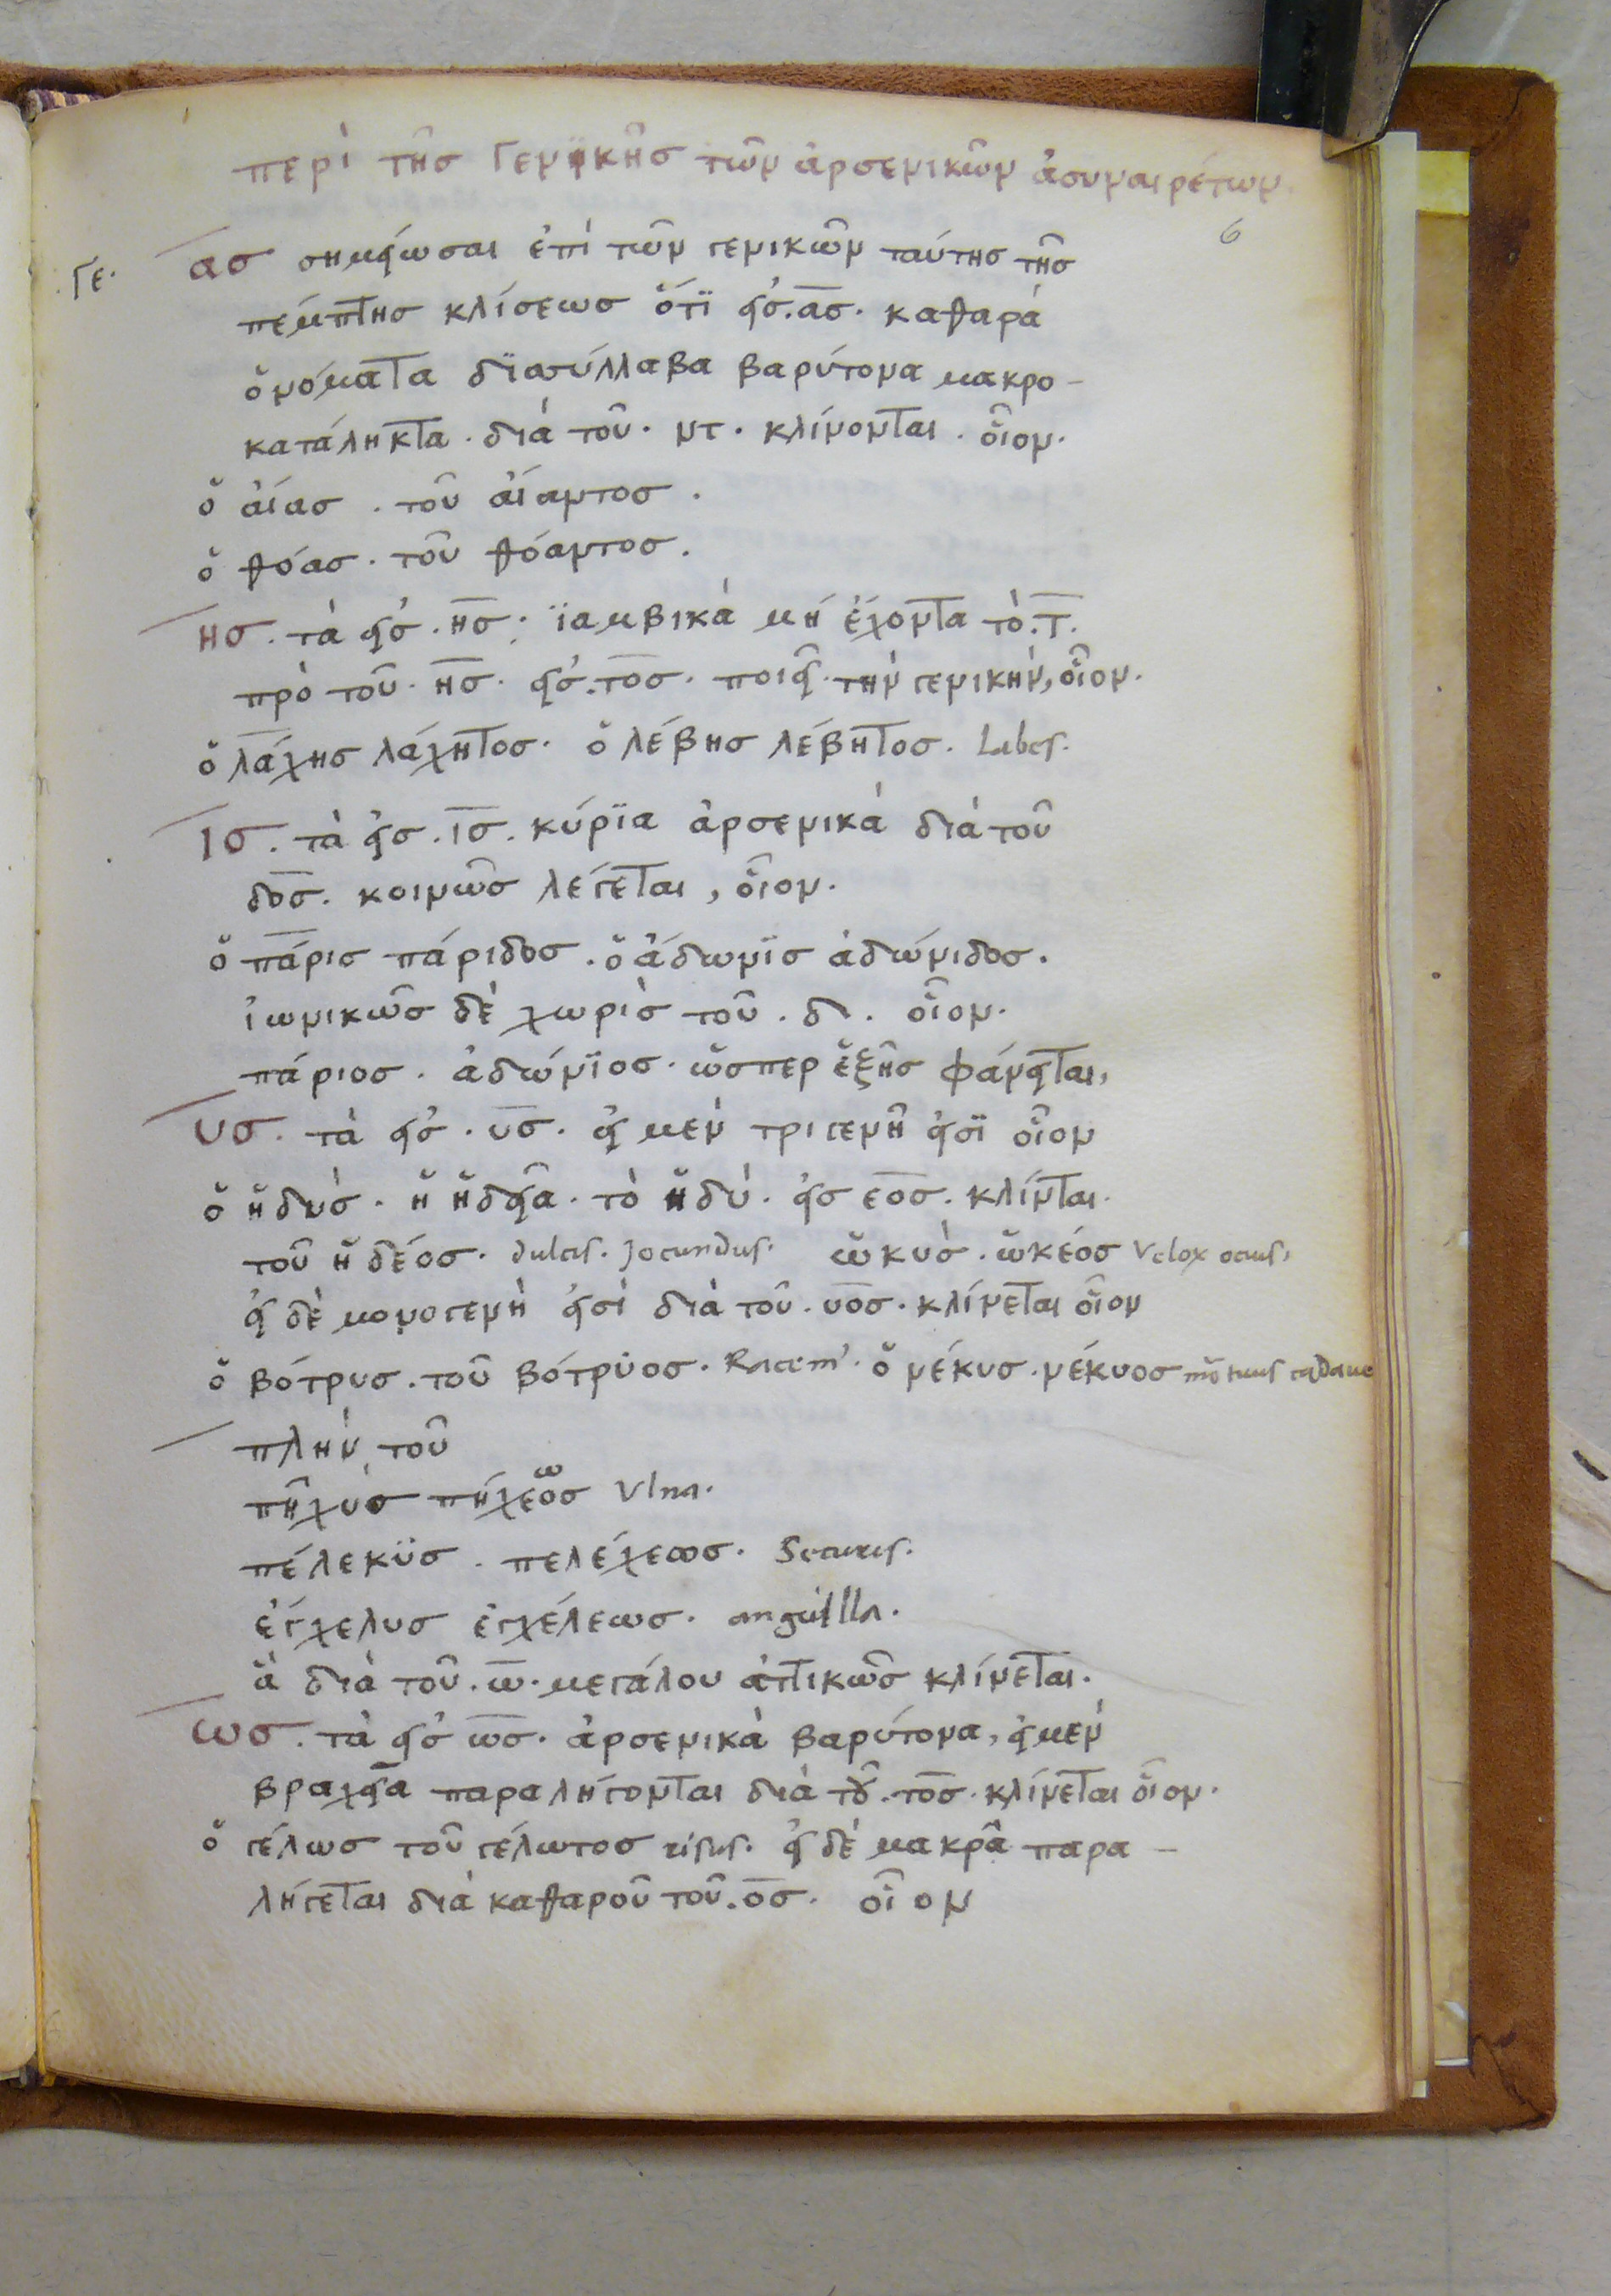 περὶ τῆς Γενϊκῆς τῶν ἀρσενικῶν ἀσυναιρέτων.
6
Γε. ας σημείωσαι ἐπὶ τῶν γενικῶν ταύτης τῆς
πέμπτης κλίσεως ὅτϊ εἰς.ας. καθαρὰ
ὀνόματα δϊσύλλαβα βαρύτονα μακρο-
κατάληκτα. διὰ τοῦ. ντ. κλίνονται. οἷον.
ὁ αἴας . τοῦ αἴαντος .
ὁ θόας. τοῦ θόαντος.
ης. τὰ εἰς . ης: ϊαμβικὰ μὴ ἔχοντα τὸ.τ.
πρὸ τοῦ. ης. εἰς.τος. ποιεῖ. τὴν γενικὴν, οἷον.
ὁ λάχης λάχητος. ὁ λέβης λέβητος. Lebes.
ις. τὰ εἰς. ις. κύρϊα ἀρσενικὰ διὰ τοῦ
δος. κοινῶς λέγεται, οἷον.
ὁ πάρις πάριδος. ὁ ἄδωνϊς ἀδώνιδος.
ἰωνικῶς δὲ χωρὶς τοῦ . δ. οἷον.
πάριος. ἀδώνϊος. ὥσπερ ἑξῆς φάνειται,
υς. τὰ εἰς . υς. εἰ μὲν τριγενῆ εἰσϊ οἷον
ὁ ἡδὺς. ἡ ἡδεῖα. τὸ ἡδὺ. εἰς εος. κλίνται.
τοῦ ἡδέος. dulcis. Jocundus. ὠκυς. ὠκέος Velox ocius,
εἰ δὲ μονογενῆ εἰσὶ διὰ τοῦ. υος. κλίνεται οἷον
ὁ βότρυς. τοῦ βότρϋος. Racem'. ὁ νέκυς. νέκυος mō tuus cadaue
πλὴν τοῦ
πῆχυς πήχεος ω Vlna.
πέλεκϋς . πελέχεως. Securis.
ἔγχελυς ἐγχέλεως. anguilla.
ἃ διὰ τοῦ. ω. μεγάλου ἀττικῶς κλίνεται.
ως. τὰ εἰς ως. ἀρσενικὰ βαρύτονα, εἰ μὲν
βραχεῖα παραλήγονται διὰ τοῦ. τος. κλίνεται οἷον.
ὁ γέλως τοῦ γέλωτος risus. εἰ δὲ μακρᾶ παρα-
λήγεται διὰ καθαροῦ τοῦ. ος. οἷον